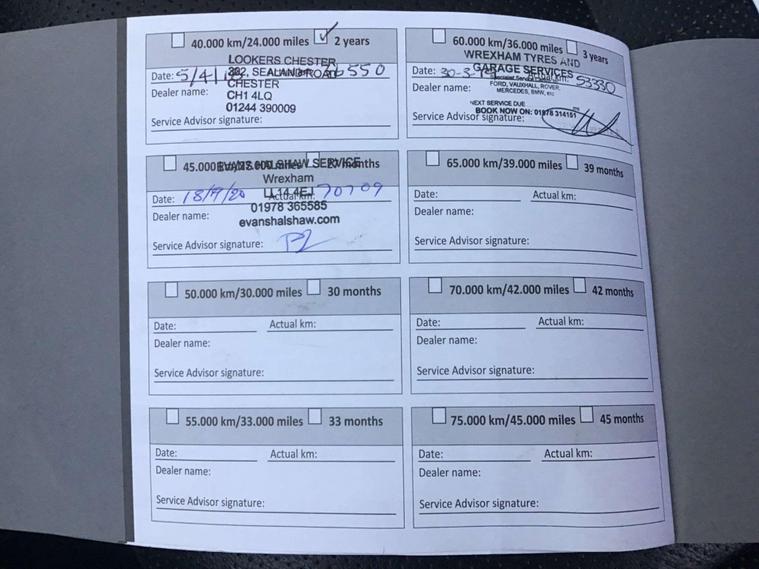 40.000 km/24.000 miles ✓ 2 years
LOOKERS CHESTER
Date: 5/4/
SEALAND ROAD
CHESTER
Dealer name:
CH1 4LQ
01244 390009
Service Advisor signature:
45.000
EVANS HALSHAW SERVICE
months
Wrexham
Date: 18/9/20
LL14 4EJ
Actual km: 70709
Dealer name:
01978 365585
evanshalshaw.com
Service Advisor signature:
50.000 km/30.000 miles 30 months
Date: Actual km:
Dealer name:
Service Advisor signature:
55.000 km/33.000 miles 33 months
Date: Actual km:
Dealer name:
Service Advisor signature:
60.000 km/36.000 miles 3 years
WREXHAM TYRES AND
GARAGE SERVICES
Date: 30-3- 53330
Dealer name:
FORD, VAUXHALL, ROVER,
MERCEDES, BMW, etc
NEXT SERVICE DUE
BOOK NOW ON: 01978 314151
Service Advisor signature:
65.000 km/39.000 miles 39 months
Date: Actual km:
Dealer name:
Service Advisor signature:
70.000 km/42.000 miles 42 months
Date: Actual km:
Dealer name:
Service Advisor signature:
75.000 km/45.000 miles 45 months
Date: Actual km:
Dealer name:
Service Advisor signature: